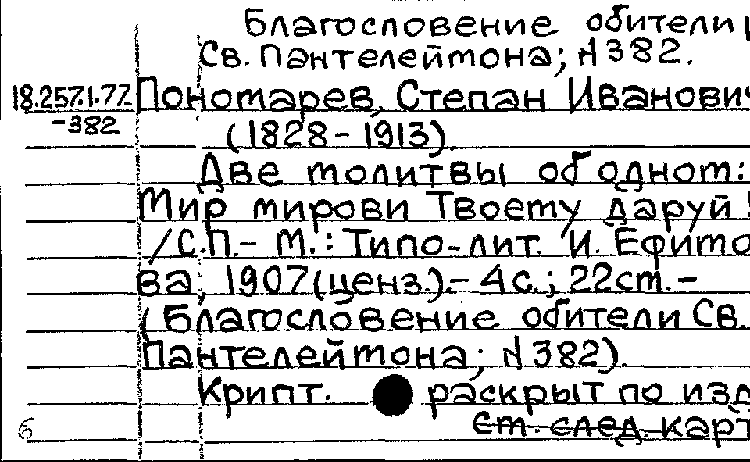 Благословение обители
Св. Пантелеймона; N 382.
18.257.1.77 Пономарев, Степан Иванович
-382 (1828-1913).
Две молитвы об одном:
Мир мирови Твоему даруй!
/С.П.- М.: Типо-лит. И. Ефимо-
ва, 1907(ценз.).- 4 с.; 22см.-
(Благословение обители Св.
Пантелеймона; N 382).
Крипт. раскрыт по изд
См. след. карт
б